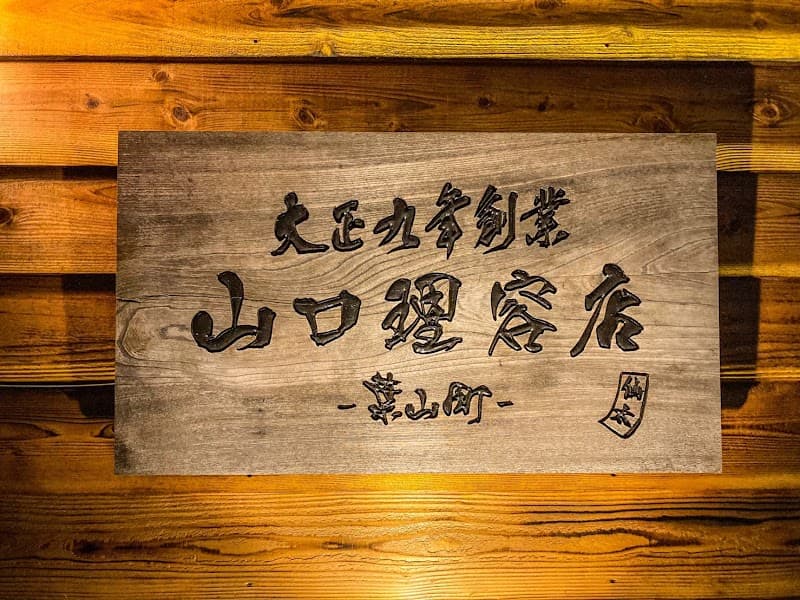 大正九年創業
山口理容店
-葉山町-
佳木